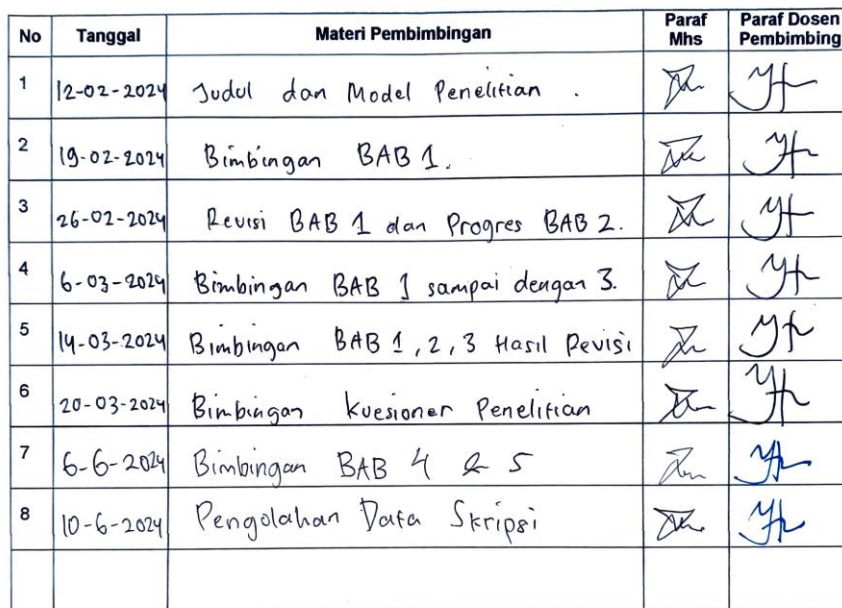 No Tanggal Materi Pembimbingan Paraf Mhs Paraf Dosen Pembimbing
1 12-02-2024 Judul dan Model Penelitian .
2 19-02-2024 Bimbingan BAB 1.
3 26-02-2024 Revisi BAB 1 dan Progres BAB 2.
4 6-03-2024 Bimbingan BAB 1 sampai dengan 3.
5 14-03-2024 Bimbingan BAB 1, 2, 3 Hasil Revisi
6 20-03-2024 Bimbingan Kuesioner Penelitian
7 6-6-2024 Bimbingan BAB 4 & 5
8 10-6-2024 Pengolahan Data Skripsi